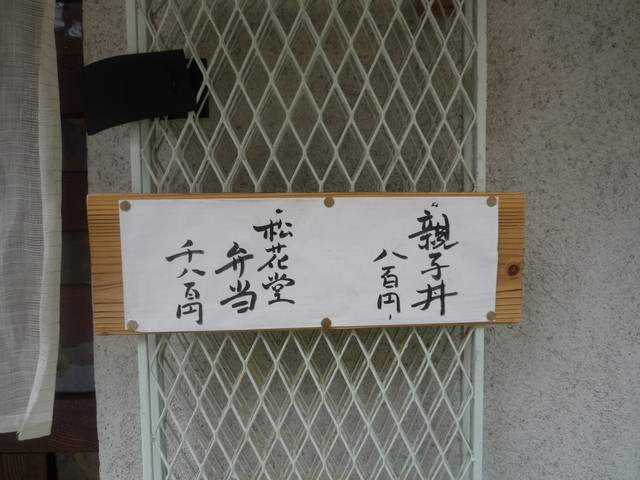 親子丼
八百円
松花堂
弁当
千八百円